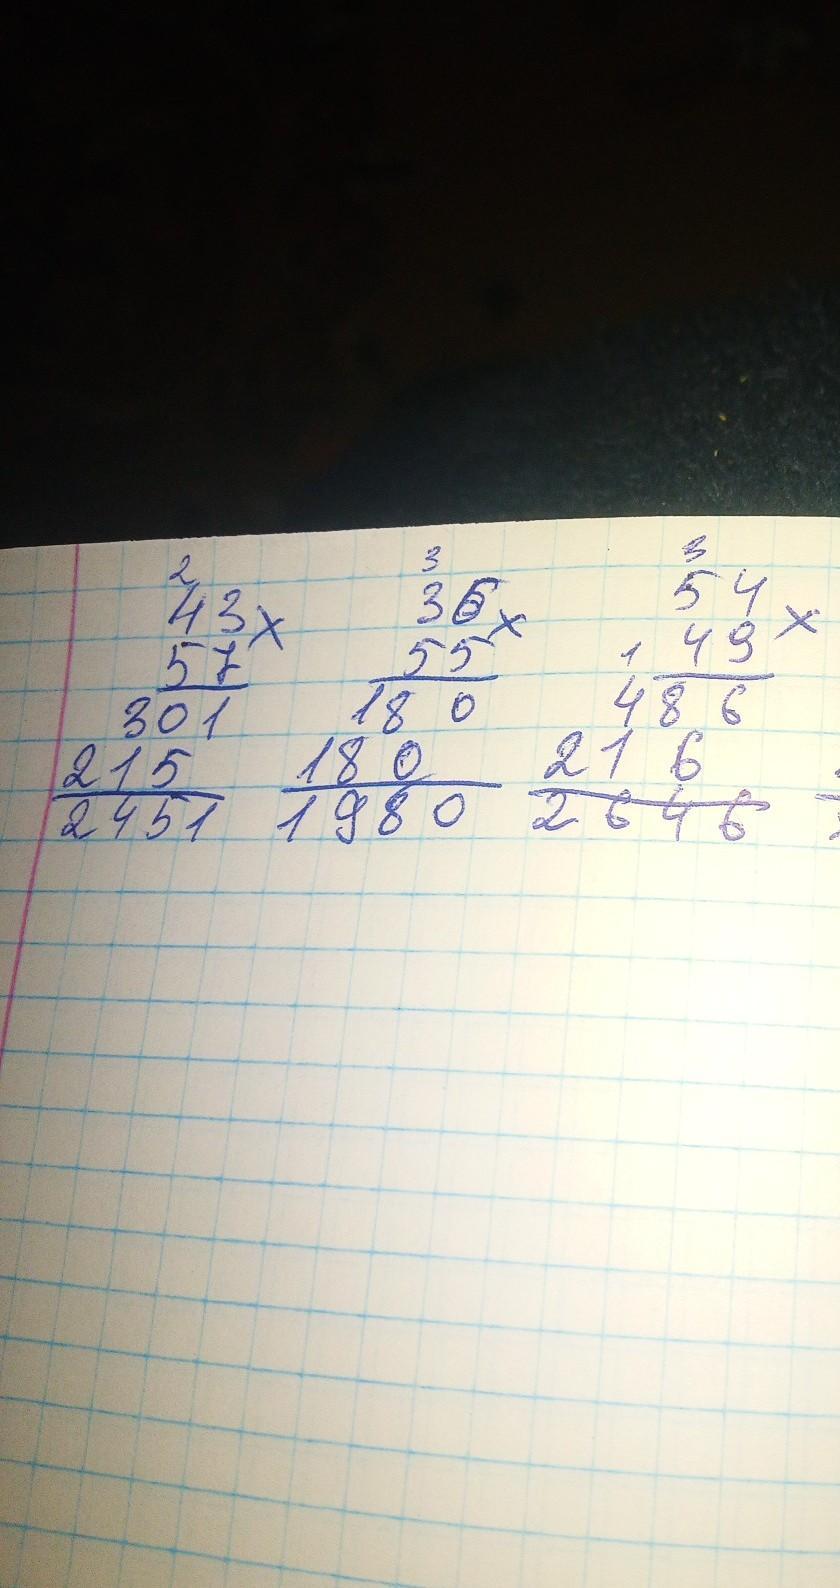 2 3 3
43 x 36 x 54 x
57 55 1 49
301 180 486
215 180 216
2451 1980 2646